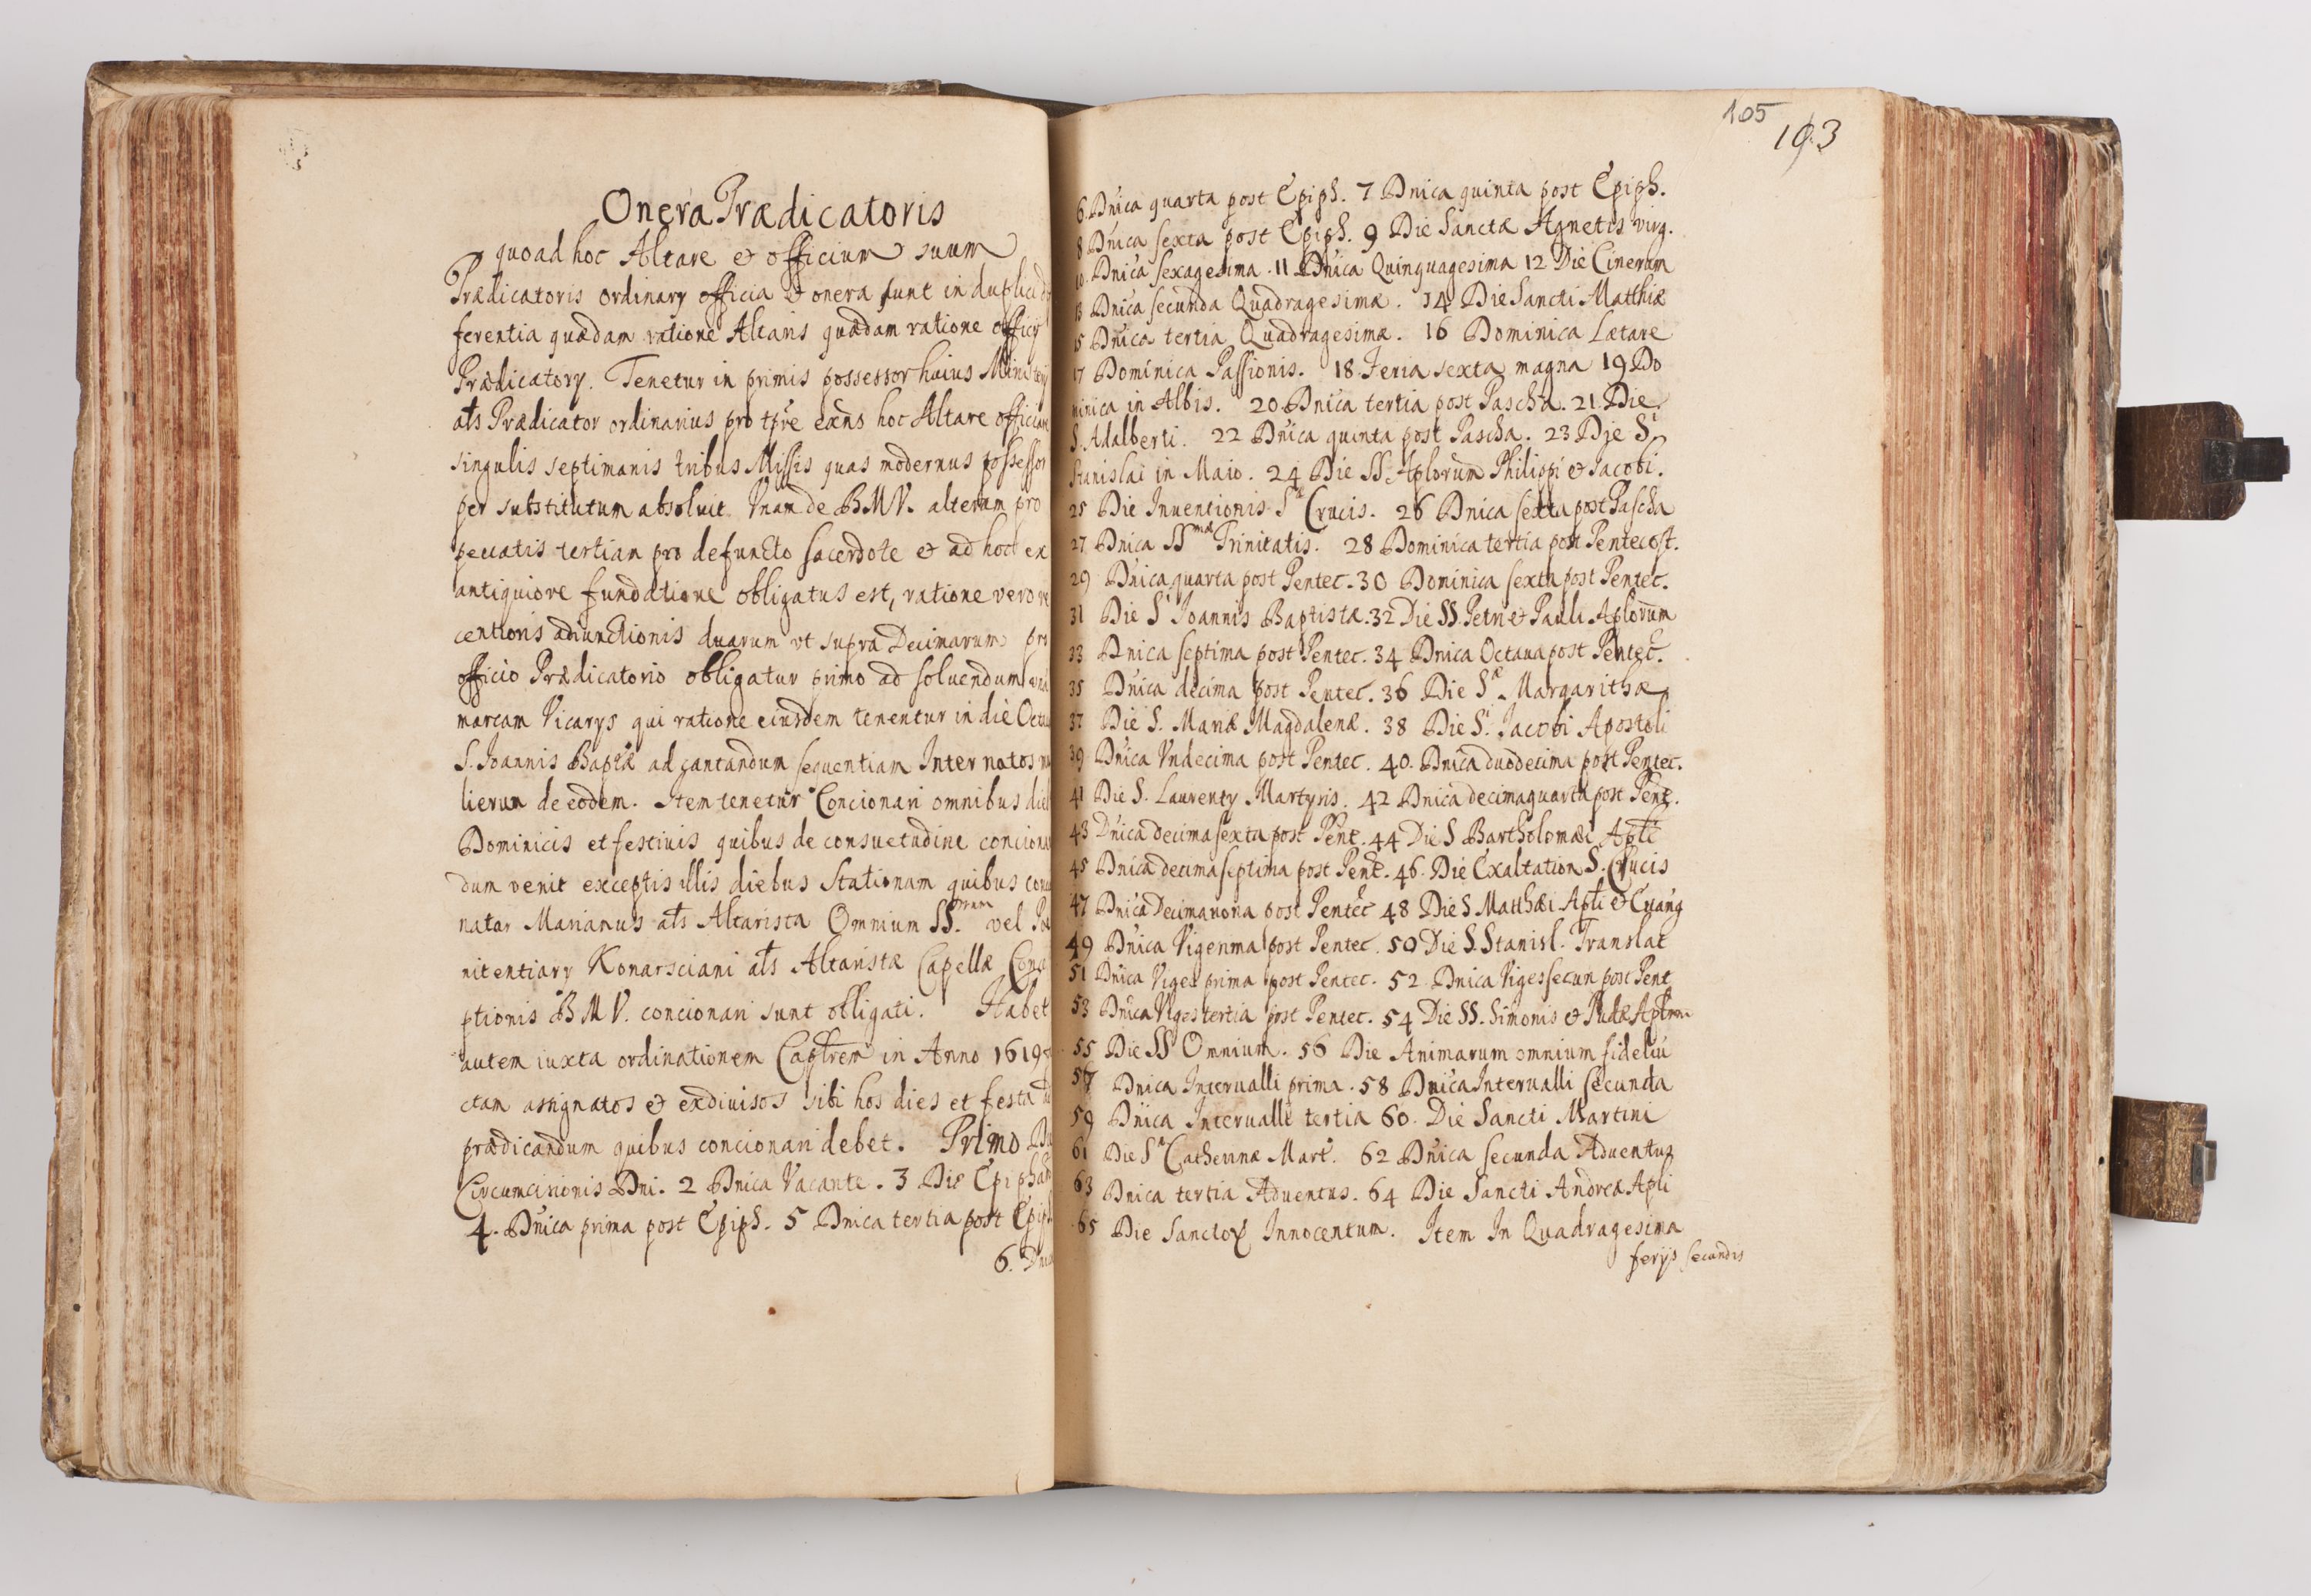 Onera Prædicatoris
quoad hoc Altare & officium suum
Prædicatoris ordinary officia & onera sunt in duplici
ferentia quædam ratione Altaris quædam ratione officij
Prædicatory. Tenetur in primis possessor huius
ats Prædicator ordinarius pro tpre exns hoc Altare
singulis septimanis tribus Missis quas modernus possessor
per substitutum absoluit Vnam de BMV. alteram pro
peccatis tertiam pro defuncto sacerdote & ad hoc ex
antiquiore fundatione obligatus est, ratione vero re
centioris adiunctionis duarum vt supra Decimarum pro
officio Prædicatorio obligatur primo ad soluendum
marcam Vicarys qui ratione eiusdem tenentur in die
S. Joannis Baptæ ad cantandum sequentiam Inter natos mu
lierum de eodem. Item tenetur Concionari omnibus
Dominicis et festiuis quibus de consuetudine
dum venit exceptis illis diebus Stationum quibus
natur Marianus ats Altarista Omnium SS.orum vel
nitentiary Konarsciani ats Altaristæ Capellæ
ptionis BMV. concionari sunt obligati. Habet
autem iuxta ordinationem Captrem in Anno 1619
ctam assignatos & exdiuisos sibi hos dies et festa
prædicandum quibus concionari debet. Primo
Circumcisionis Dni. 2 Dnica Vacante. 3 Die
4. Dnica prima post Epiph. 5 Dnica tertia post
6. Dnica
105
103
6. Dnica quarta post Epiph. 7 Dnica quinta post Epiph.
8 Dnica sexta post Epiph. 9 Die Sanctæ Agnetis virg.
10. Dnica sexagesima. 11 Dnica Quinquagesima 12 Die Cinerum
13 Dnica secunda Quadragesimæ. 14 Die Sancti Matthiæ
15 Dnica tertia Quadragesimæ. 16 Dominica Lætare
17 Dominica Passionis. 18. Feria sexta magna 19 Do
minica in Albis. 20 Dnica tertia post Pascha. 21. Die
S. Adalberti. 22 Dnica quinta post Pascha. 23 Die Si
Stanislai in Maio. 24 Die SS. Aplorum Philippi & Jacobi.
25 Die Inuentionis S Crucis. 26 Dnica sexta post Pascha
27 Dnica SSmæ Trinitatis. 28 Dominica tertia post Pentecost.
29 Dnica quarta post Pentec. 30 Dominica sexta post Pentec.
31 Die Si Joannis Baptistæ. 32 Die SS. Petri & Pauli Aplorum
33 Dnica septima post Pentec. 34 Dnica Octaua post Pentec.
35 Dnica decima post Pentec. 36 Die Sæ Margarithæ
37 Die S. Mariæ Magdalenæ. 38 Die Si. Jacobi Apostoli
39 Dnica Vndecima post Pentec. 40. Dnica duodecima post Pentec.
41 Die S. Laurenty Martyris. 42 Dnica decimaquarta post Pent.
43 Dnica decimasexta post Pent. 44 Die S Bartholomæi Apti
45 Dnica decimaseptima post Pent. 46. Die Exaltation S. Crucis
47 Dnica Decimanona post Pentec 48 Die S Matthæi Apti & Euang
49 Dnica Vigesima post Pentec. 50 Die S. Stanisl. Translat
51 Dnica Viges prima post Pentec. 52 Dnica Viges secun post Pent
53 Dnica Viges tertia post Pentec. 54 Die SS. Simonis & Judæ
55 Die SS Omnium. 56 Die Animarum omnium fideliu
57 Dnica Interualli prima. 58 Dnica Interualli secunda
59 Dnica Interualli tertia 60. Die Sancti Martini
61 Die S Catherinæ Mart. 62 Dnica secunda Aduentus
63 Dnica tertia Aduentus. 64 Die Sancti Andreæ Apli
65 Die Sanctoꝝ Innocentum. Item In Quadragesima
ferijs secundis